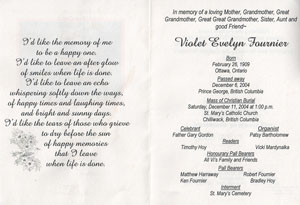 I'd like the memory of me
to be a happy one.
I'd like to leave an after glow
of smiles when life is done.
I'd like to leave an echo
whispering softly down the ways,
of happy times and laughing times,
and bright and sunny days.
I'd like the tears of those who grieve
to dry before the sun
of happy memories
that I leave
when life is done.
In memory of a loving Mother, Grandmother, Great
Grandmother, Great Great Grandmother, Sister, Aunt and
good Friend~
Violet Evelyn Fournier
Born
February 26, 1909
Ottawa, Ontario
Passed away
December 6, 2004
Prince George, British Columbia
Mass of Christian Burial
Saturday, December 11, 2004 at 1:00 p.m.
St. Mary's Catholic Church
Chilliwack, British Columbia
Celebrant Organist
Father Gary Gordon Patsy Bartholomew
Readers
Timothy Hoy Vicki Mardynalka
Honourary Pall Bearers
All Vi's Family and Friends
Pall Bearers
Matthew Hamaway Robert Fournier
Ken Fournier Bradley Hoy
Interment
St. Mary's Cemetery